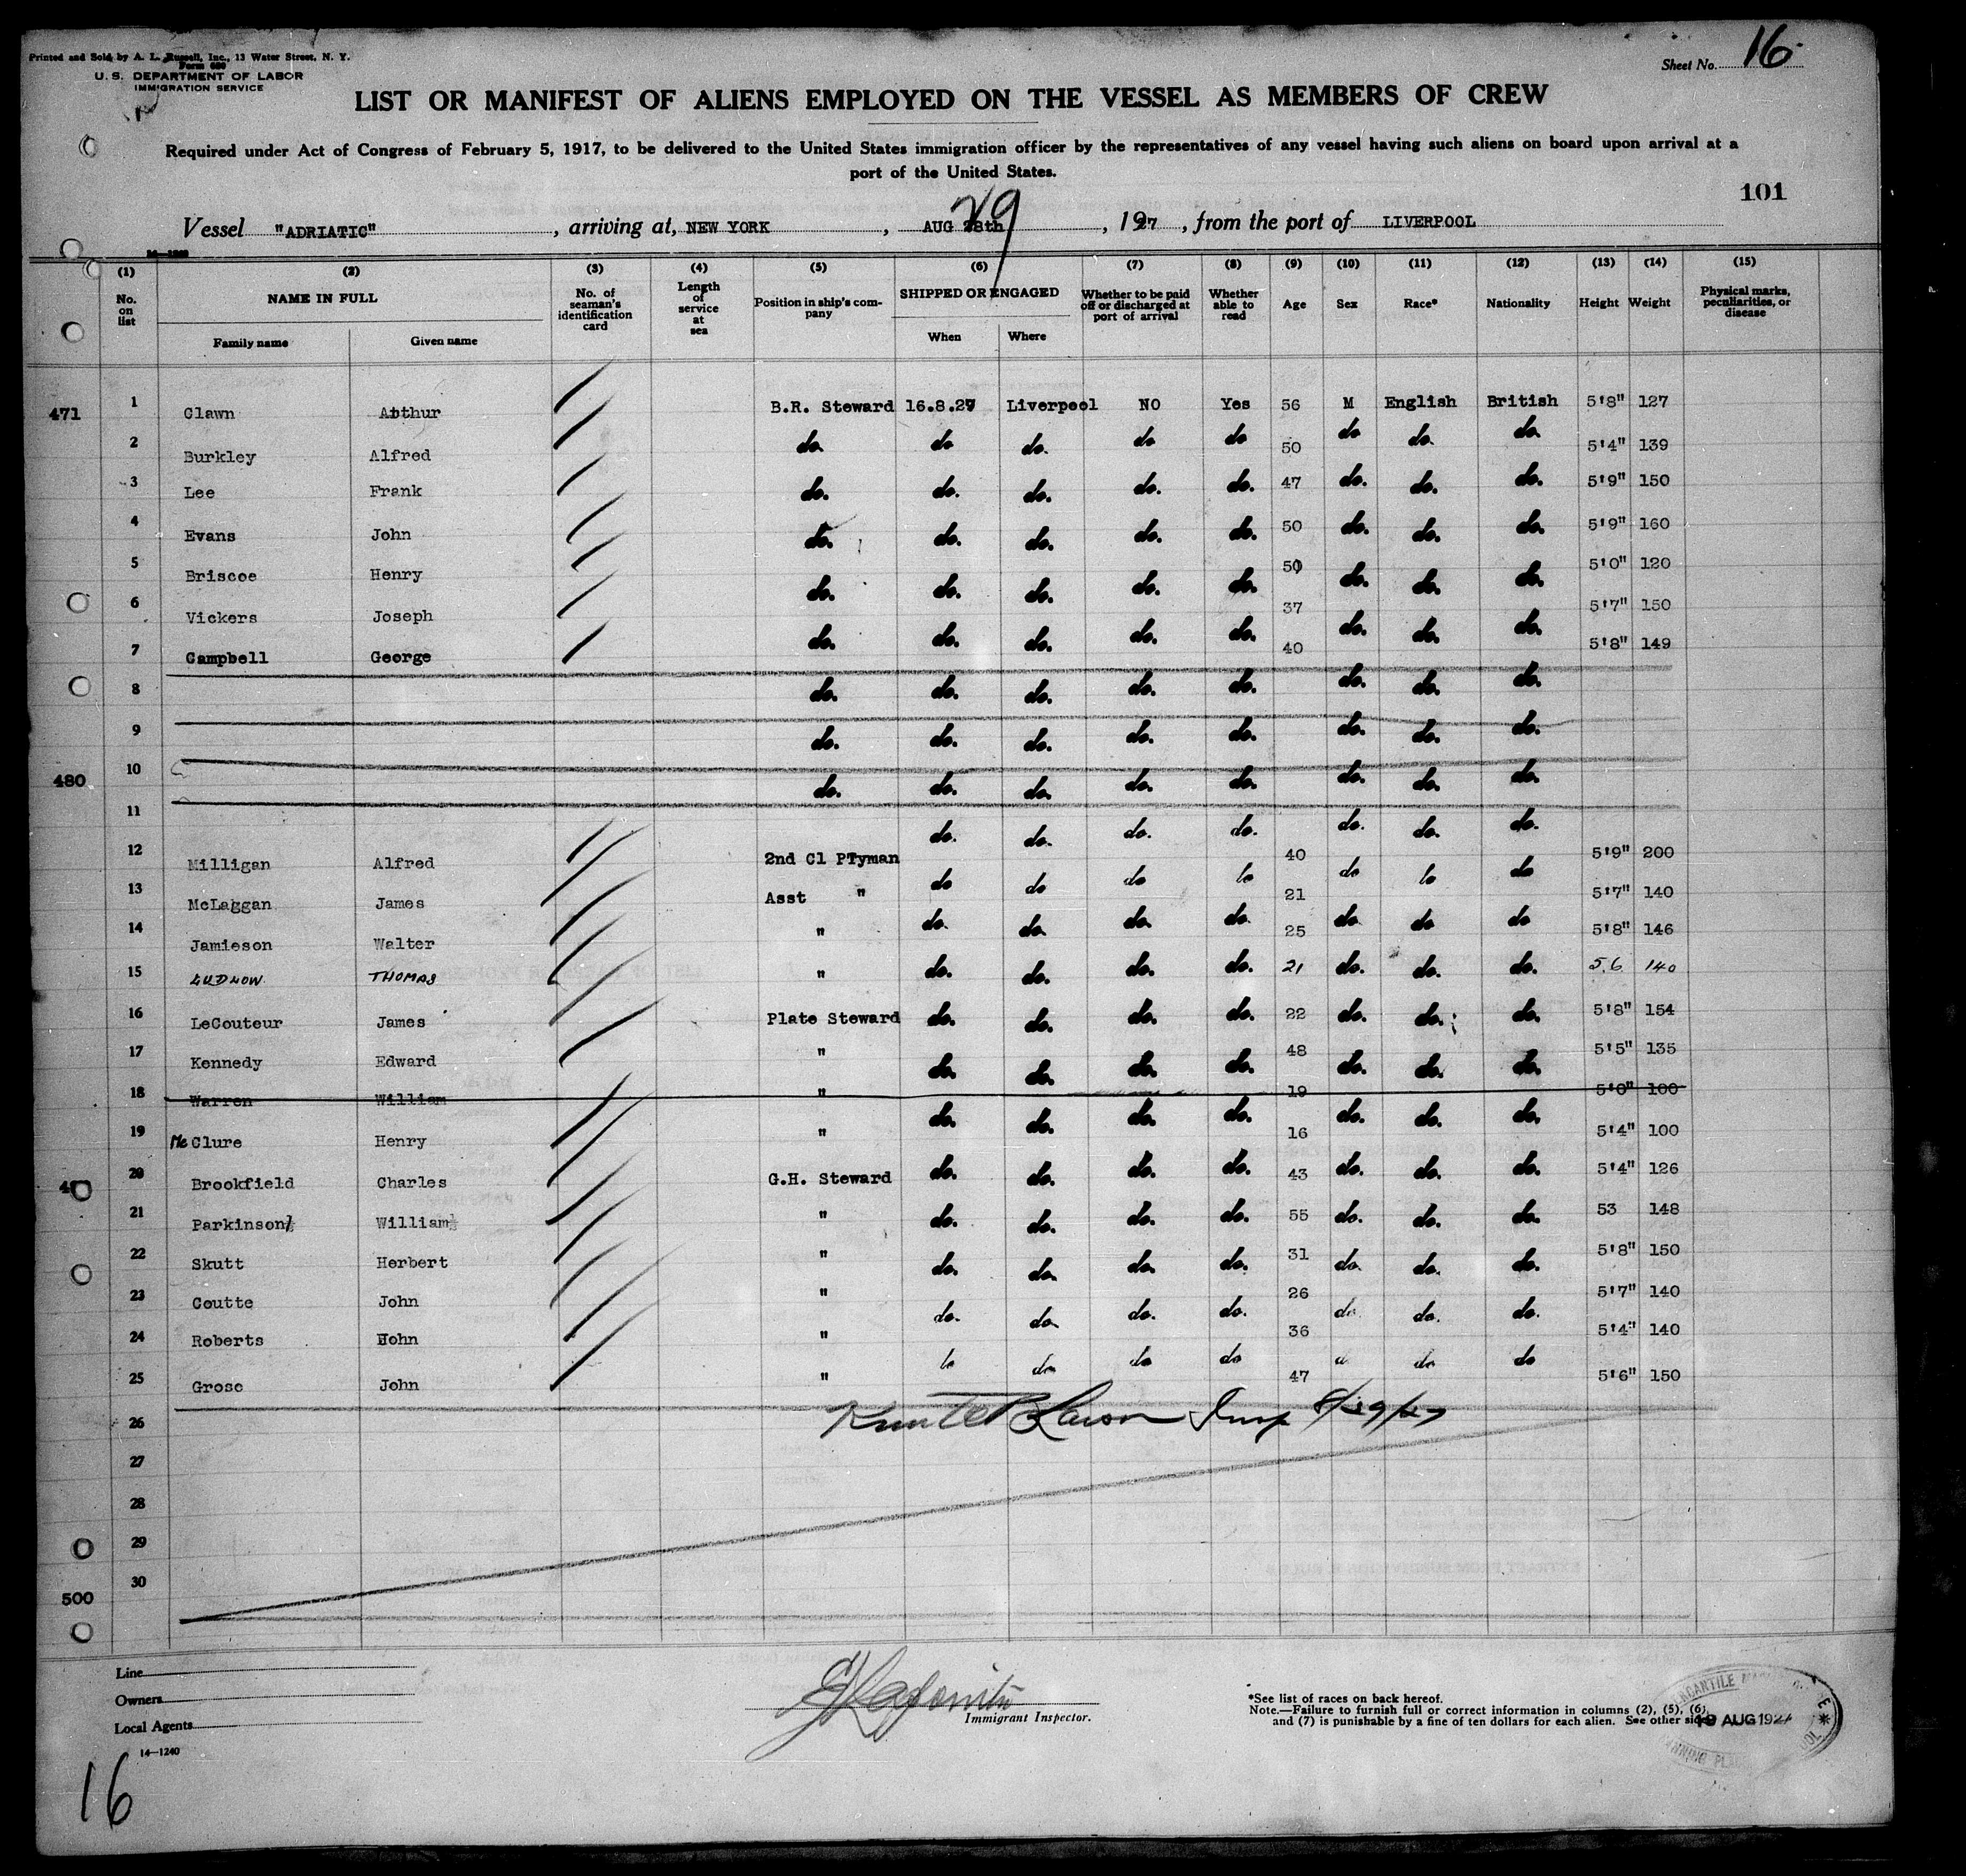 Printed and Sold by A. L. Russell, Inc., 13 Water Street, N. Y.
Form 680
U. S. DEPARTMENT OF LABOR
IMMIGRATION SERVICE
Sheet No. 16
LIST OR MANIFEST OF ALIENS EMPLOYED ON THE VESSEL AS MEMBERS OF CREW
Required under Act of Congress of February 5, 1917, to be delivered to the United States immigration officer by the representatives of any vessel having such aliens on board upon arrival at a
port of the United States.
101
Vessel "ADRIATIC", arriving at, NEW YORK, AUG 28th 29, 1927, from the port of LIVERPOOL
14—1240
(1) (2) (3) (4) (5) (6) (7) (8) (9) (10) (11) (12) (13) (14) (15)
No. on list NAME IN FULL Family name Given name No. of seaman's identification card Length of service at sea Position in ship's company SHIPPED OR ENGAGED When Where Whether to be paid off or discharged at port of arrival Whether able to read Age Sex Race* Nationality Height Weight Physical marks, peculiarities, or disease
471 1 Clawn Arthur B.R. Steward 16.8.27 Liverpool NO Yes 56 M English British 5'8" 127
2 Burkley Alfred do. do do. do do 50 do do. do. 5'4" 139
3 Lee Frank do. do. do. do. do. 47 do. do. do. 5'9" 150
4 Evans John do. do. do. do. do. 50 do. do. do. 5'9" 160
5 Briscoe Henry do. do. do. do. do. 50 do. do. do. 5'0" 120
6 Vickers Joseph do. do. do. do. do. 37 do. do. do. 5'7" 150
7 Campbell George do. do. do. do. do. 40 do. do. do. 5'8" 149
8 do. do. do. do. do. do. do. do.
9 do. do. do. do. do. do. do. do.
480 10 do. do. do. do. do. do. do. do.
11 do. do. do. do. do. do. do.
12 Milligan Alfred 2nd Cl PTyman do do do do 40 do do do 5'9" 200
13 McLaggan James Asst " do. do. do. do. 21 do. do do 5'7" 140
14 Jamieson Walter " do. do. do. do. 25 do. do. do. 5'8" 146
15 LUDLOW THOMAS " do. do. do. do. 21 do. do. do. 5.6 140
16 LeCouteur James Plate Steward do. do. do. do. 22 do. do. do. 5'8" 154
17 Kennedy Edward " do. do. do. do. 48 do. do. do. 5'5" 135
18 Warren William " do. do. do. do. 19 do. do. do. 5'0" 100
19 Mc Clure Henry " do. do. do. do. 16 do. do. do. 5'4" 100
20 Brookfield Charles G.H. Steward do. do. do. do. 43 do. do. do. 5'4" 126
21 Parkinson William " do. do. do. do. 55 do. do. do. 53 148
22 Skutt Herbert " do. do. do. do. 31 do. do. do. 5'8" 150
23 Coutte John " do. do. do. do. 26 do. do. do. 5'7" 140
24 Roberts John " do do do do 36 do do do 5'4" 140
25 Grose John " 47 5'6" 150
26 Insp 8/29/27
27
28
29
500 30
Line
Owners
Local Agents
14—1240
Immigrant Inspector.
*See list of races on back hereof.
Note.—Failure to furnish full or correct information in columns (2), (5), (6),
and (7) is punishable by a fine of ten dollars for each alien. See other side.
AUG 192
16